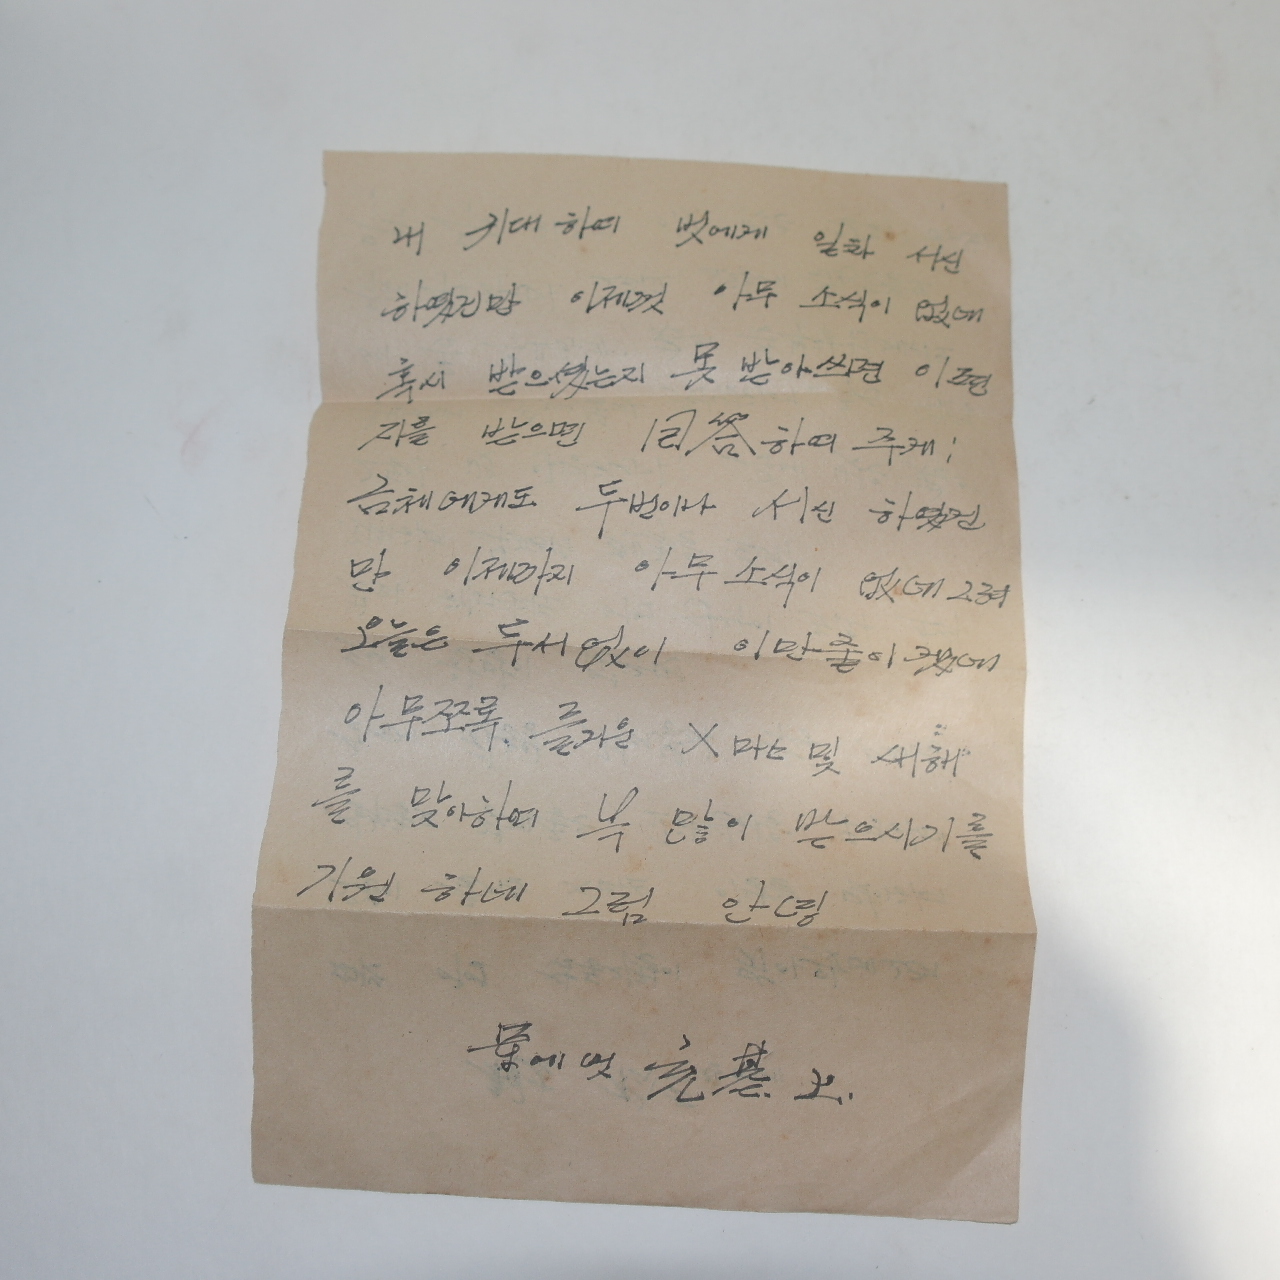 내 귀대하여 벗에게 일차 서신
하였건만 이제껏 아무 소식이 없네
혹시 받으셨는지 못 받아쓰면 이 편
지를 받으면 回答하여 주게;
금체에게도 두번이나 서신 하였건
만 이제까지 아무 소식이 없네 그려
오늘은 두서없이 이만 줄이겠네
아무쪼록 즐거운 X마스 및 새해
를 맞아하여 복 많이 받으시기를
기원 하네 그럼 안녕
에 벗 基 上.